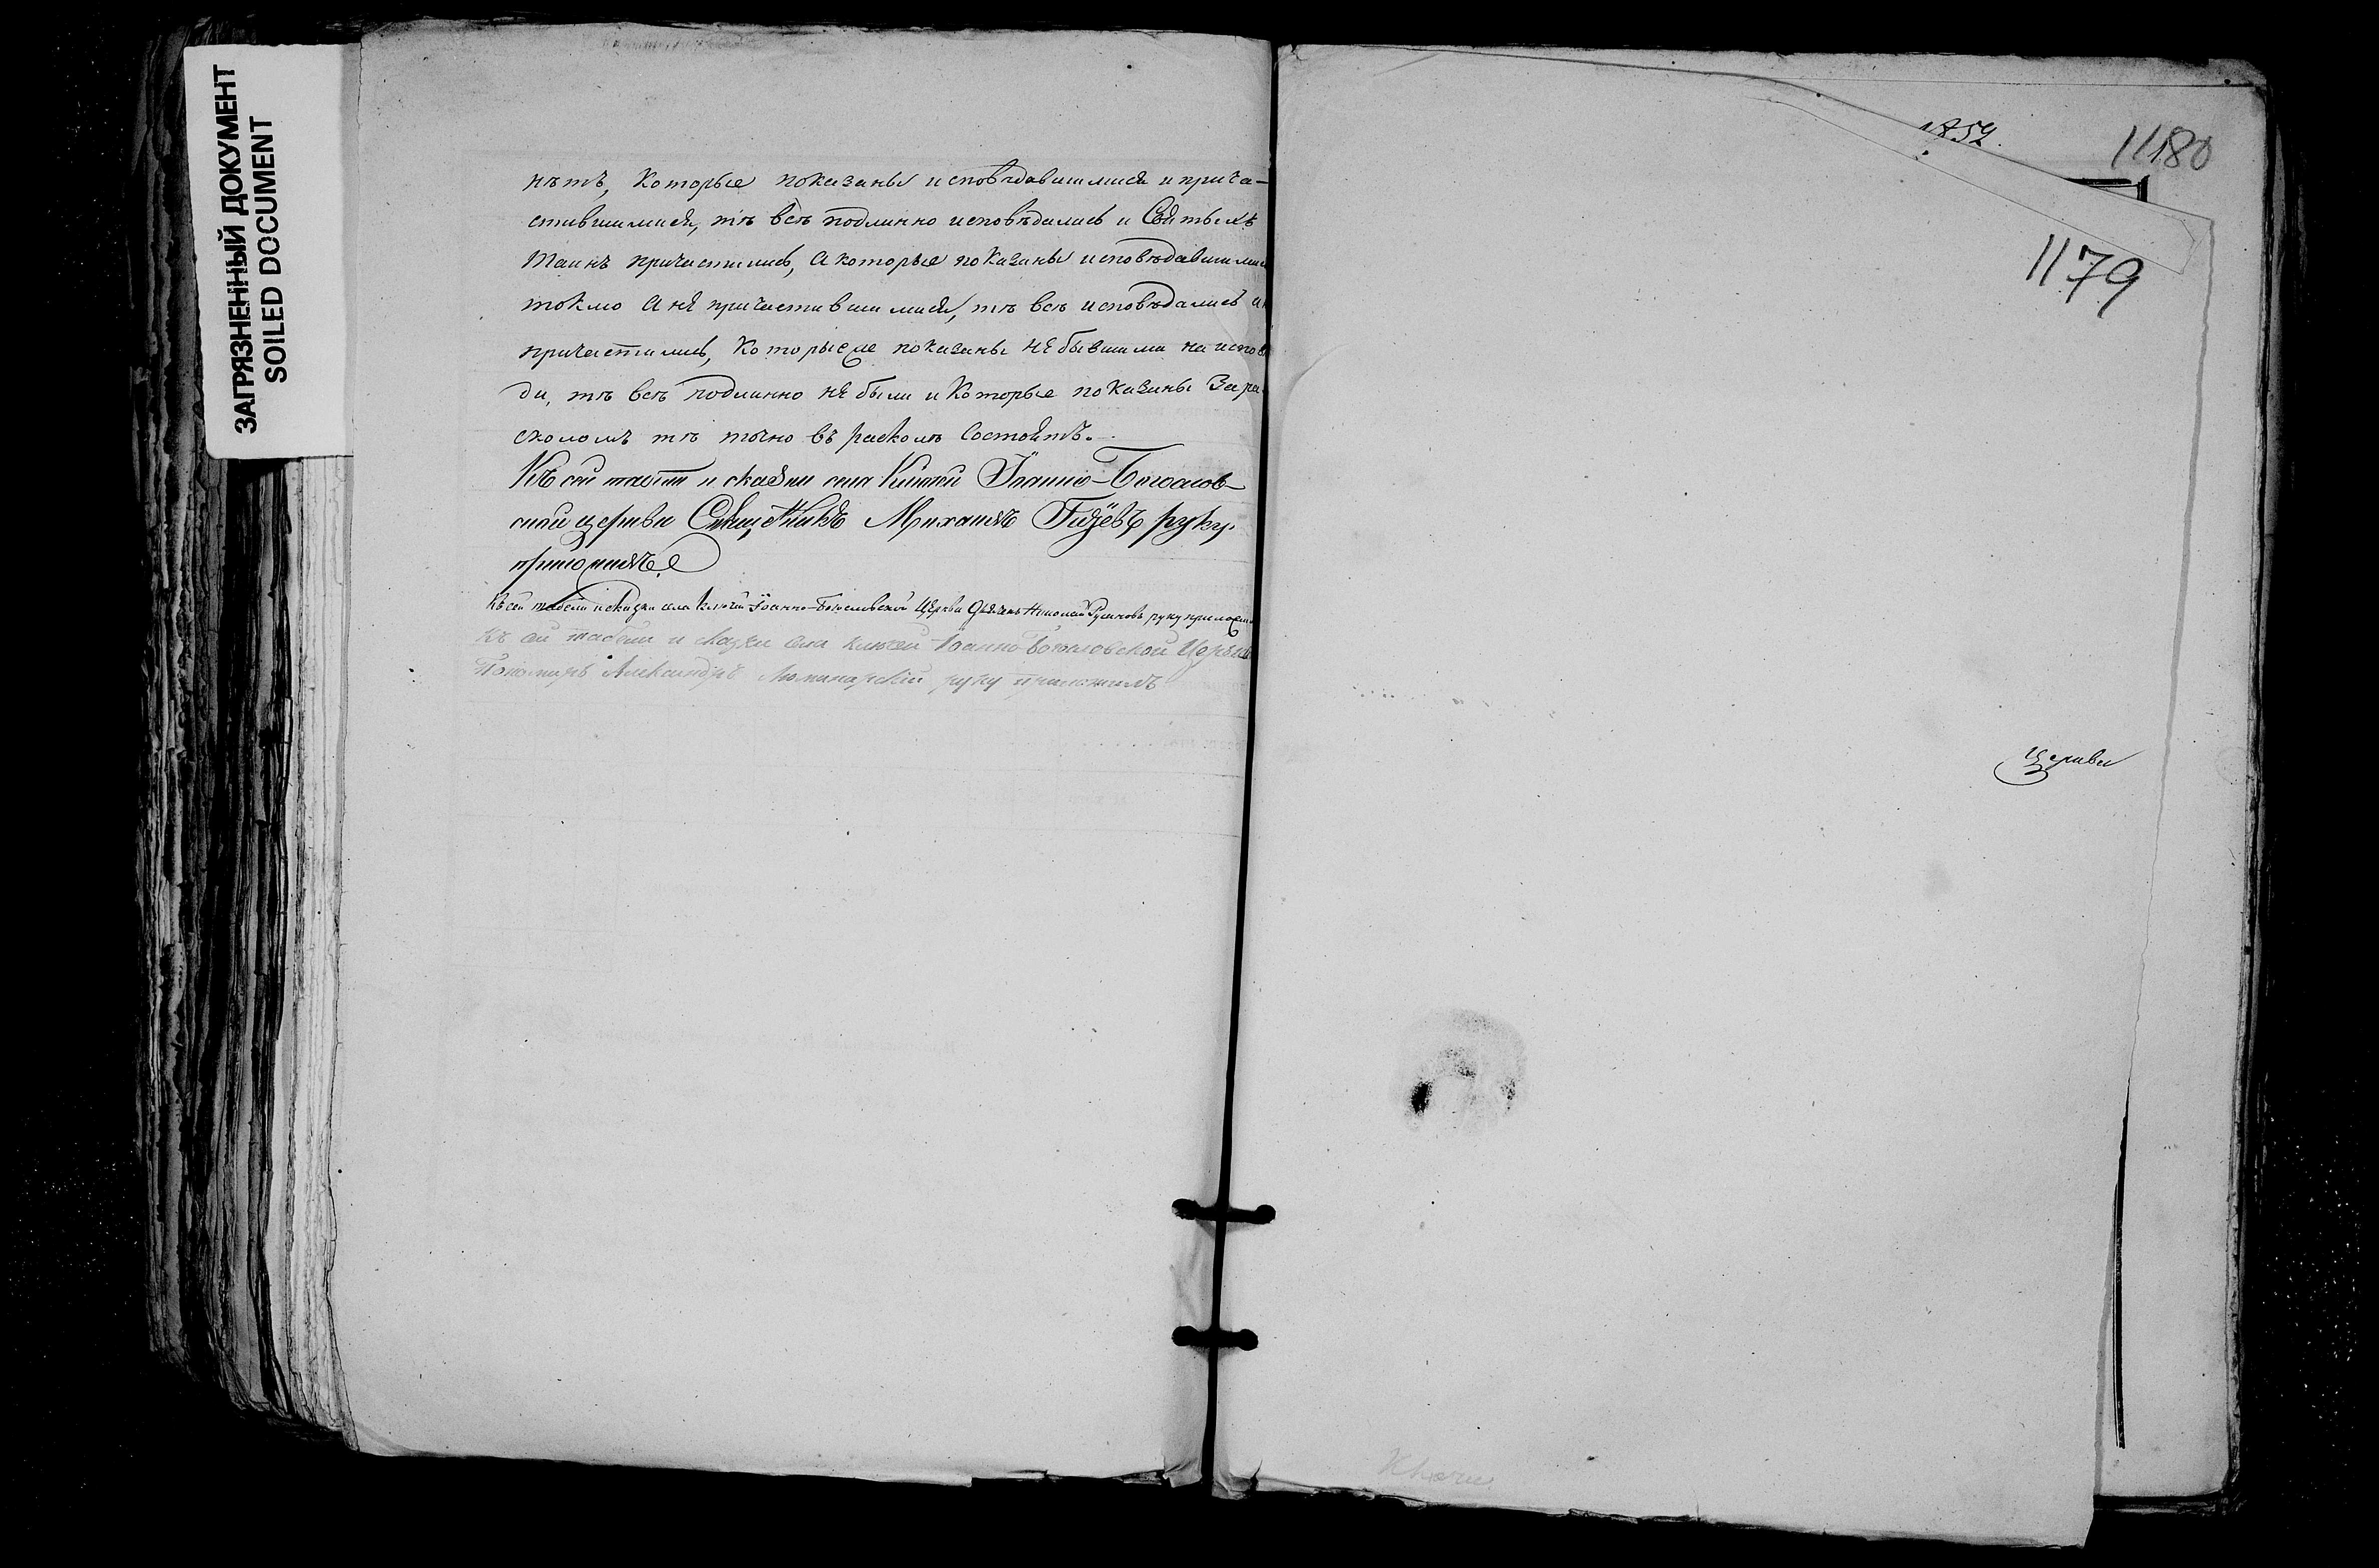 ЗАГРЯЗНЕННЫЙ ДОКУМЕНТ
SOILED DOCUMENT
нѣтъ, которые показаны исповѣдавшимися и прича-
стившимися, тѣ всѣ подлинно исповѣдались и Святыхъ
Таинъ причастились, а которые показаны исповѣдавшими
токмо а не причастившимися, тѣ всѣ исповѣдались
причастились, которые же показаны не бывшими на испов
ди, тѣ всѣ подлинно не были и которые показаны за ра
сколомъ тѣ точно въ расколѣ состоятъ.
Къ сей табели и сказки села Ключей Іоанно-Богослов-
ской церкви Священникъ Михаилъ руку
приложилъ
Къ сей табели и сказки села Ключей Іоанно-Богословской Церкви Дьячекъ Николай руку приложи
Къ сей табели и сказки села Ключей Іоанно-Богословской Церкви
Пономарь Александръ руку приложилъ
1852.
1180
1179
Церкви
Ключи